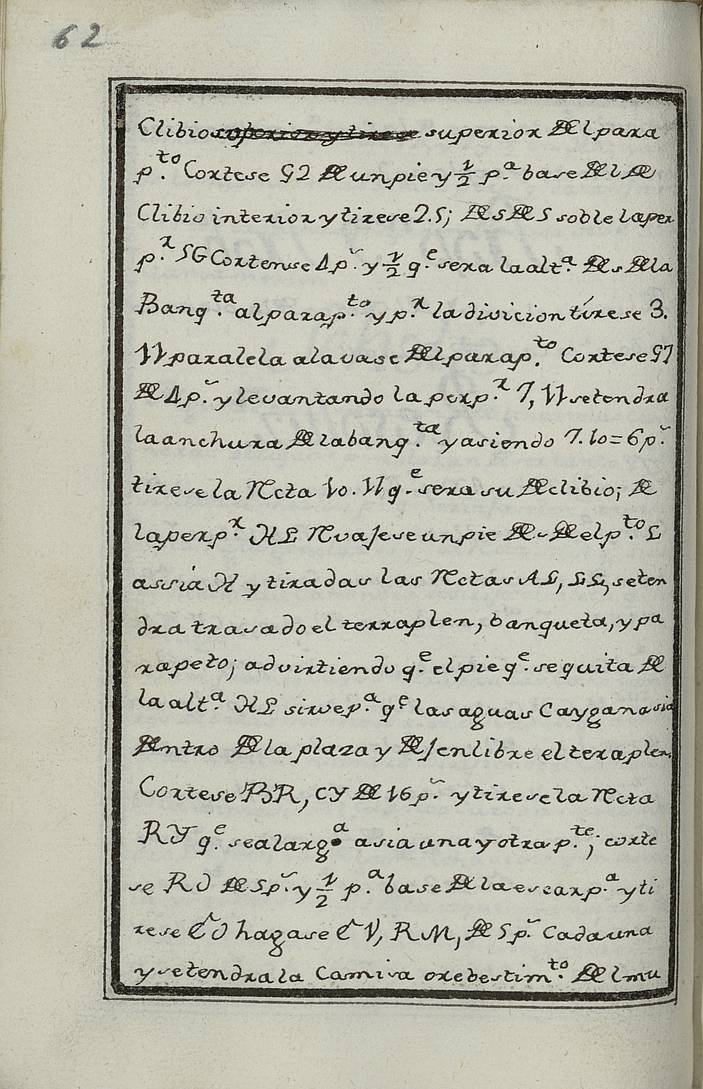 62
Clibio superior y tirese superior Del para
p.to Cortese G2 De un pie y 1/2 p.a base Del De
Clibio interior y tirese 2.S; Des De S soble la per
p.r SG Cortense 4 p.s y 1/2 q.e sera la alt.a Des De la
Banq.ta al parap.to y p.r la divicion tírese 3.
11 paralela a la vase Del parap.to Cortese G7
De 4 p.s y levantando la perp.r 7, 11 se tendra
la anchura De la banq.ta y asiendo 7.10=6 p.s
tirese la Recta 10.11 q.e sera su Declibio; De
la perp.r HL Rvajese un pie Des De el p.to L
assiá H y tiradas las Rectas AL, LL, se ten
dra trasado el terraplen, banqueta, y pa
rapeto; advirtiendo q.e el pie q.e se quita De
la alt.a HL sirve p.a q.e las aguas Caygan asia
Dentro De la plaza y Dejen libre el teraplen.
Cortese BR, CY De 16 p.s y tirese la Recta
RY q.e se alarga asia una y otra p.te; corte
se RO De 5 p.s y 1/2 p.a base De la escarp.a y ti
rese CO hagase CV, RM, De 5 p.s Cada una
y se tendra la Camisa o rebestim.to Del mu